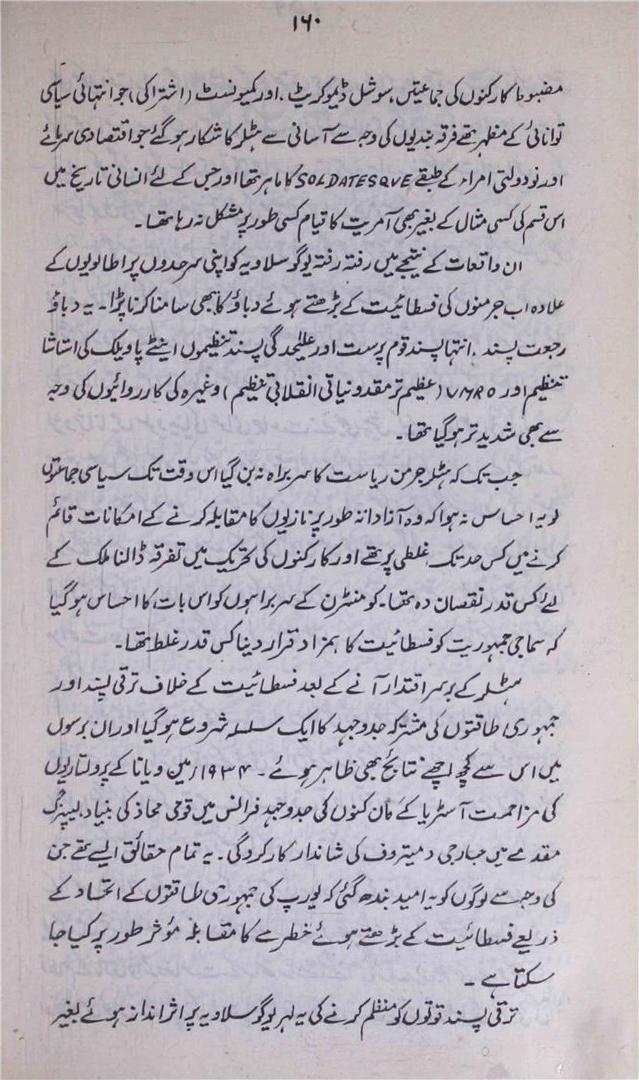 ۱۶۰
مضبوط کارکنوں کی جماعتیں، سوشل ڈیموکریٹ، اور کمیونسٹ (اشتراکی) جو انتہائی سیاسی
توانائی کے مظہر تھے فرقہ بندیوں کی وجہ سے آسانی سے ہٹلر کا شکار ہو گئے جو اقتصادی سرمائے
اور نو دولتی امراء کے طبقے SOLDATESQUE کا ماہر تھا اور جس کے لئے انسانی تاریخ میں
اس قسم کی کسی مثال کے بغیر بھی آمریت کا قیام کسی طور پر مشکل نہ رہا تھا۔
ان واقعات کے نتیجے میں رفتہ رفتہ یوگوسلاویہ کو اپنی سرحدوں پر اطالویوں کے
علاوہ اب جرمنوں کی فسطائیت کے بڑھتے ہوئے دباؤ کا بھی سامنا کرنا پڑا۔ یہ دباؤ
رجعت پسند، انتہا پسند قوم پرست اور علیٰحدگی پسند تنظیموں اینٹے پاویلک کی استاشا
تنظیم اور VMRO (عظیم تر مقدونیاتی انقلابی تنظیم) وغیرہ کی کارروائیوں کی وجہ
سے بھی شدید تر ہو گیا تھا۔
جب تک کہ ہٹلر جرمن ریاست کا سربراہ نہ بن گیا اس وقت تک سیاسی جماعتوں
کو یہ احساس نہ ہوا کہ وہ آزادانہ طور پر نازیوں کا مقابلہ کرنے کے امکانات قائم
کرنے میں کس حد تک غلطی پر تھے اور کارکنوں کی تحریک میں تفرقہ ڈالنا ملک کے
لئے کس قدر نقصان دہ تھا۔ کومنٹرن کے سربراہوں کو اس بات کا احساس ہو گیا
کہ سماجی جمہوریت کو فسطائیت کا ہمزاد قرار دینا کس قدر غلط تھا۔
ہٹلر کے برسر اقتدار آنے کے بعد فسطائیت کے خلاف ترقی پسند اور
جمہوری طاقتوں کی مشترکہ جدوجہد کا ایک سلسلہ شروع ہو گیا اور ان برسوں
میں اس سے کچھ اچھے نتائج بھی ظاہر ہوئے۔ ۱۹۳۴ء میں ویانا کے پرولتاریوں
کی مزاحمت آسٹریا کے کان کنوں کی جدوجہد فرانس میں قومی محاذ کی بنیاد، لیپزگ
مقدمے میں جیارجی دمیتروف کی شاندار کارکردگی۔ یہ تمام حقائق ایسے تھے جن
کی وجہ سے لوگوں کو یہ امید بندھ گئی کہ یورپ کی جمہوری طاقتوں کے اتحاد کے
ذریعے فسطائیت کے بڑھتے ہوئے خطرے کا مقابلہ مؤثر طور پر کیا جا
سکتا ہے۔
ترقی پسند قوتوں کو منظم کرنے کی یہ لہر یوگوسلاویہ پر اثر انداز ہوئے بغیر